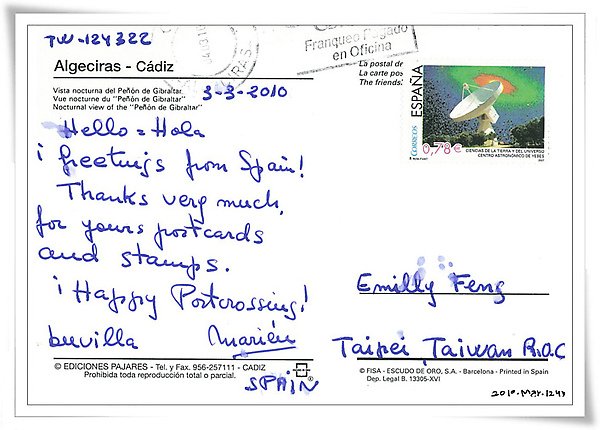 TW-124322
Algeciras - Cádiz
Vista nocturna del Peñón de Gibraltar.
Vue nocturne du "Peñón de Gibraltar"
Nocturnal view of the "Peñón de Gibraltar"
3-3-2010
Hello = Hola
¡ Greetings from Spain!
Thanks very much,
for yours postcards
and stamps.
¡ Happy Postcrossing!
Marién
SPAIN
© EDICIONES PAJARES - Tel. y Fax. 956-257111 - CADIZ
Prohibida toda reproducción total o parcial.
Franqueo Pagado
en Oficina
La postal de
La carte pos
The friends'
ESPAÑA
CORREOS
0,78 €
CIENCIAS DE LA TIERRA Y DEL UNIVERSO
CENTRO ASTRONÓMICO DE YEBES
Emilly Feng
Taipei, Taiwan R.O.C
© FISA - ESCUDO DE ORO, S.A. - Barcelona - Printed in Spain
Dep. Legal B. 13305-XVI